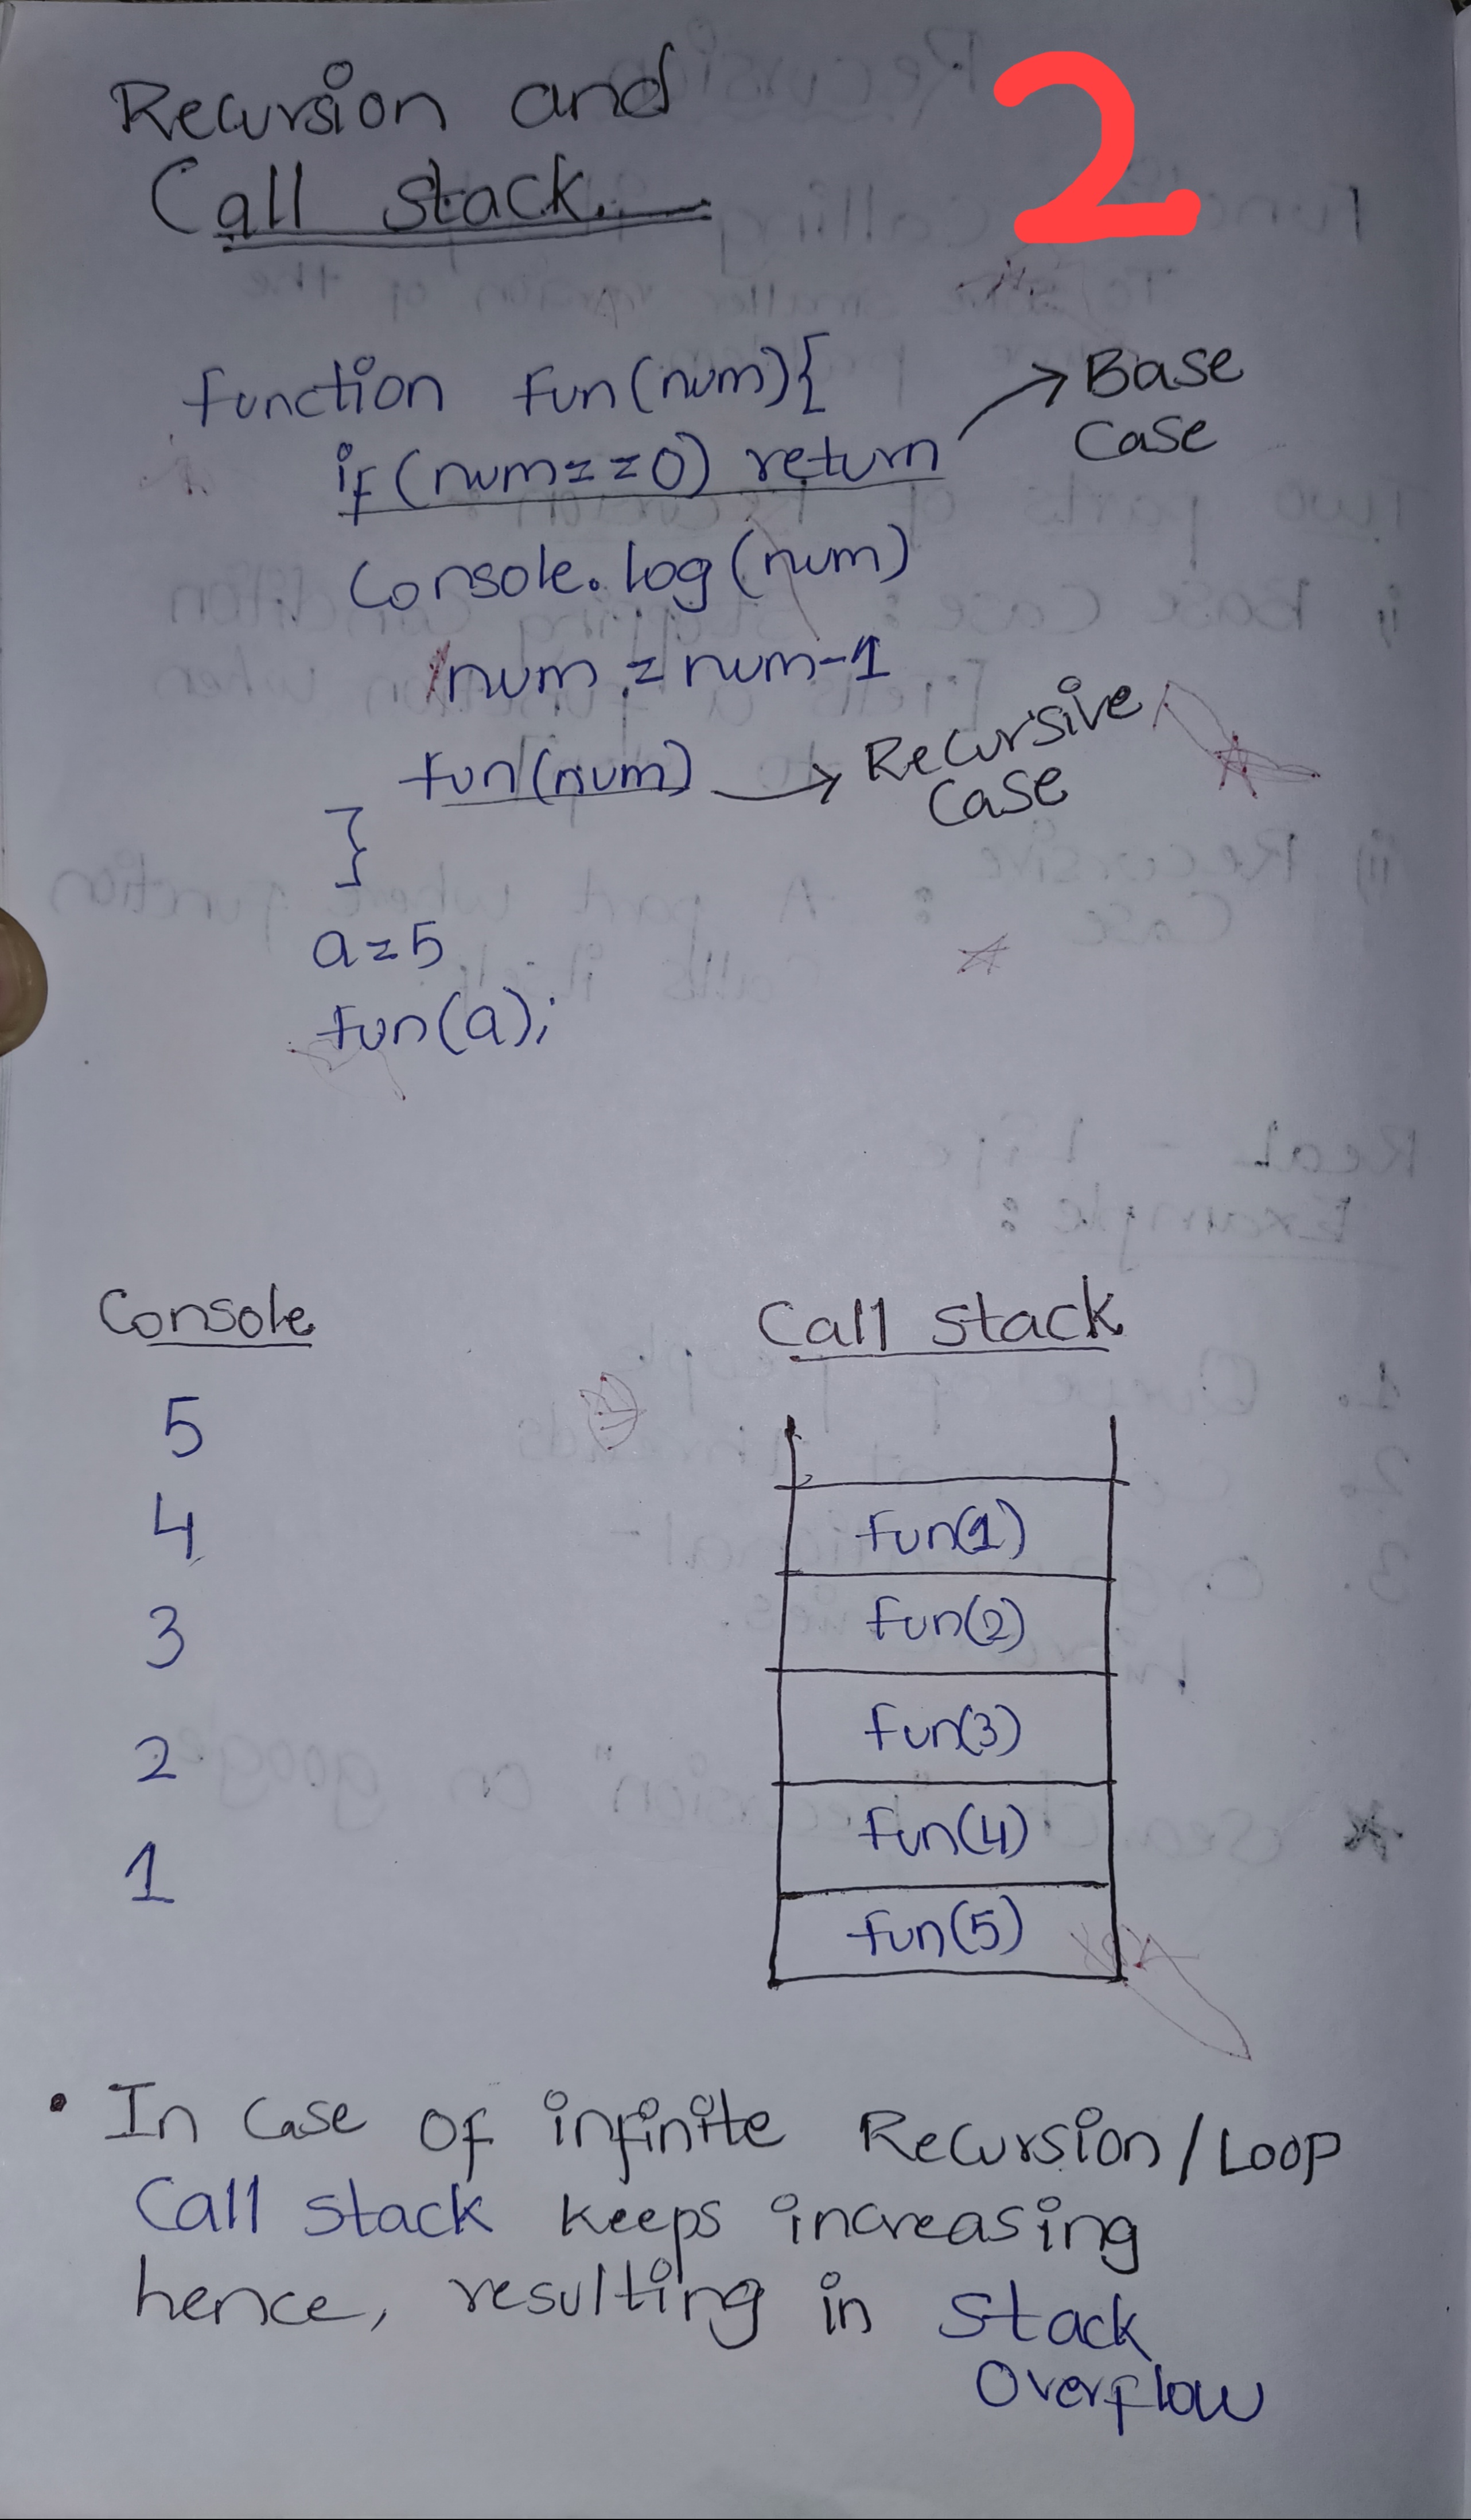 Recursion and
Call stack.
2
function fun(num){
if(num==0) return
Base
Case
Console.log(num)
num = num-1
fun(num)
Recursive
Case
}
a=5
fun(a);
Console
5
4
3
2
1
Call stack
fun(1)
fun(2)
fun(3)
fun(4)
fun(5)
• In Case of infinite Recursion/Loop
Call stack keeps increasing
hence, resulting in Stack
Overflow